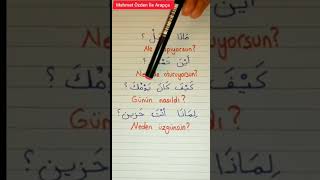 Mehmet Özden ile Arapça
مَاذَا ؟
Ne
أَيْنَ ؟
oturuyorsun?
كَيْفَ كَانَ يَوْمُكَ ؟
Günün nasıldı?
لِمَاذَا أَنْتَ حَزِين ؟
Neden üzgünsün?